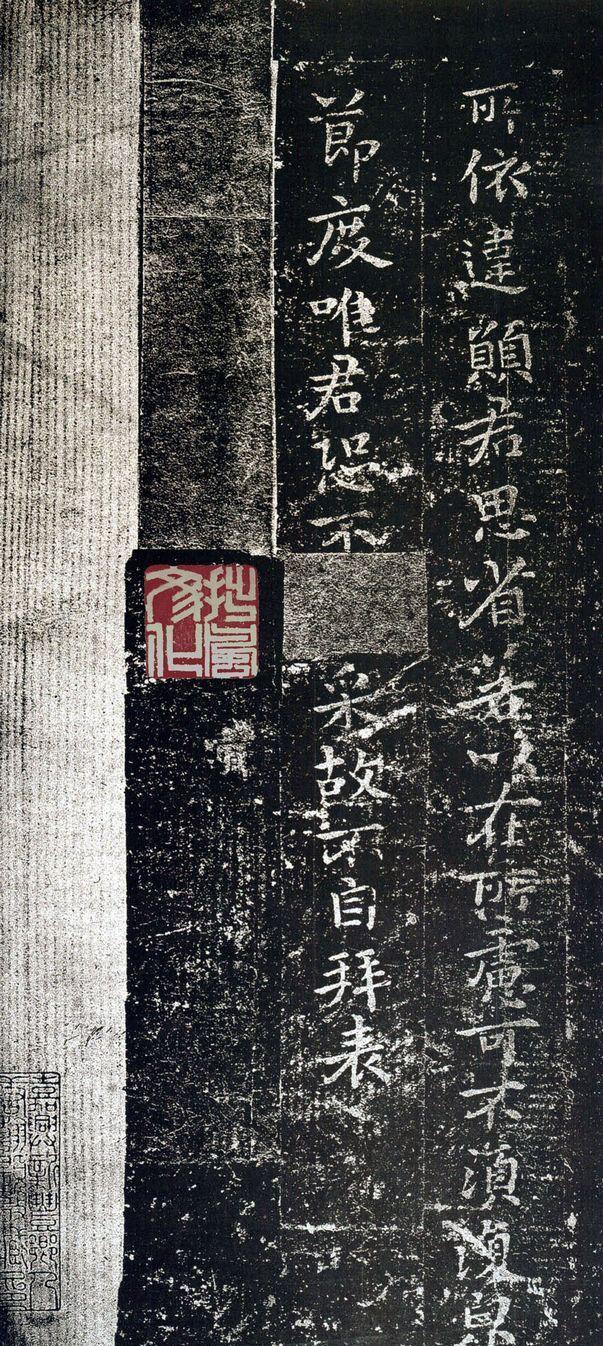 所依違願君思省若以在所慮可不須復
節度唯君恐不
采故不自拜表